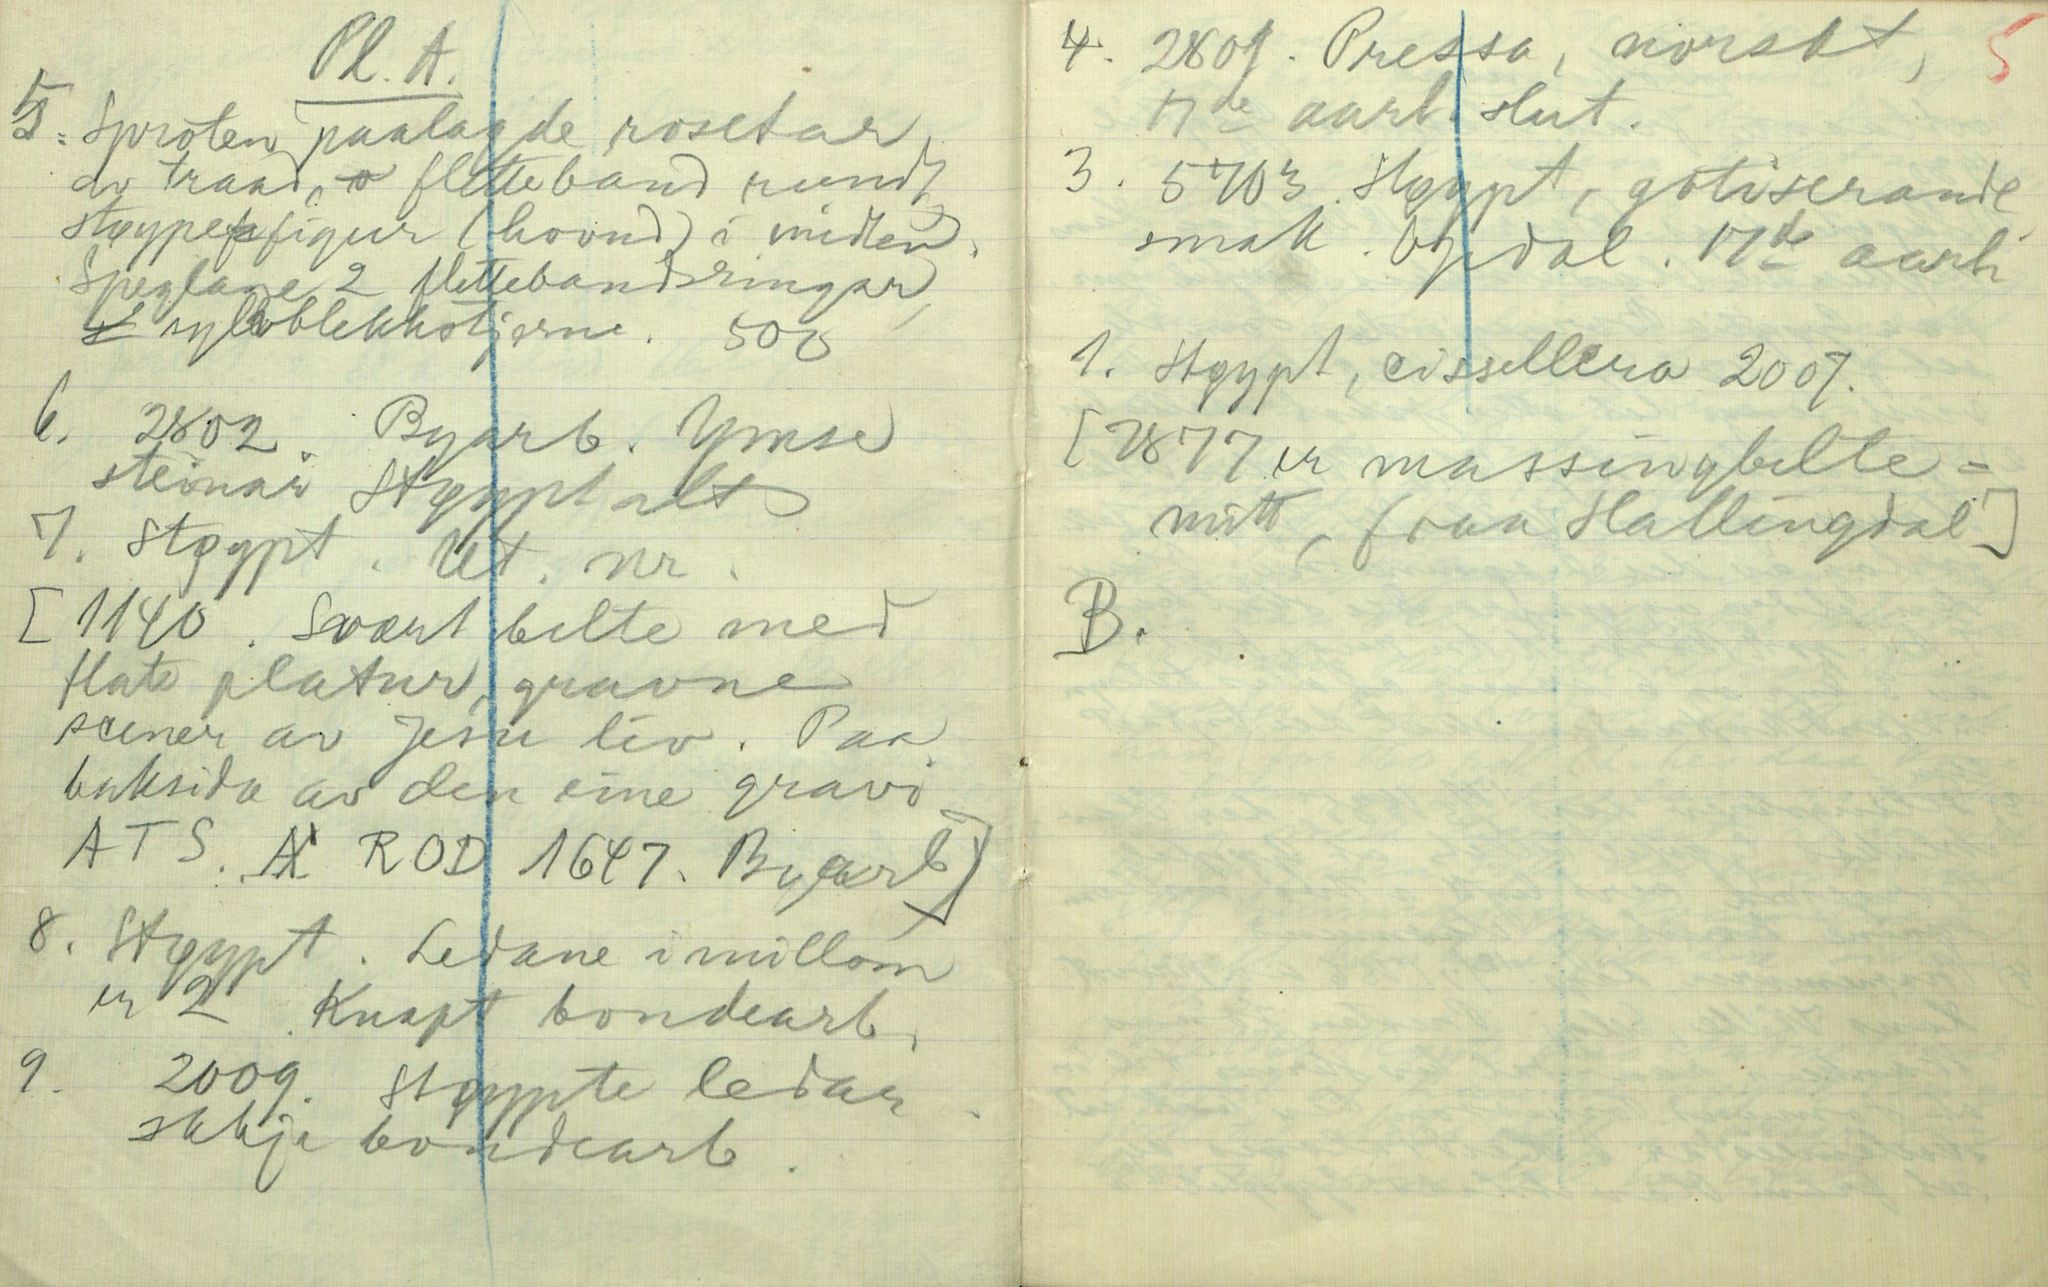 Pl. A.
5. Sproten paalagde rosetar
av traad, fletteband rundt
støype figur (hovud) i midten.
Speglane 2 flettebandsringar,
sylvblekkstjerne. 503
6. 2802. Byarb. Ymse
steinar Støypt alt
7. Støypt. Ut. nr.
[1140. Svært belte med
flate platur, gravne
scener av Jesu liv. Paa
baksida av den eine gravi
ATS. ROD 1647. Byarb]
8. Støypt. Ledane imillom
er 2. Knapt bondearb.
9. 2009. Støypte ledar.
ikkje bondearb.
4. 2809. Pressa, norskt, 5
17de aarh. slut.
3. 5703. Støypt, gotiserande
smak. Opdal. 17de aarh
1. Støypt, cissellera 2007.
[2877 er massingbelte-
mitt, fraa Hallingdal]
B.